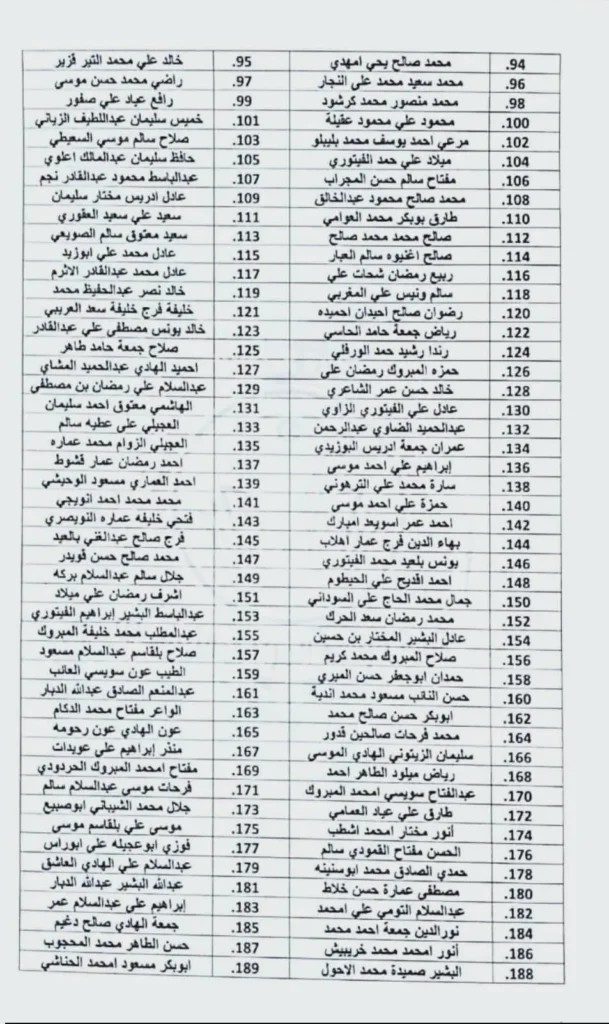 94. محمد صالح يحي امهدي 95. خالد علي محمد التير قزير
96. محمد سعيد محمد على النجار 97. راضي محمد حسن موسى
98. محمد منصور محمد كرشود 99. رافع عياد علي صفور
100. محمود علي محمود عقيلة 101. خميس سليمان عبداللطيف الزياني
102. مرعي احمد يوسف محمد بليبلو 103. صلاح سالم موسي السعيطي
104. ميلاد علي حمد الفيتوري 105. حافظ سليمان عبدالمالك اعلوي
106. مفتاح سالم حسن المجراب 107. عبدالباسط محمود عبدالقادر نجم
108. محمد صالح محمود عبدالخالق 109. عادل ادريس مختار سليمان
110. طارق بوبكر محمد العوامي 111. سعيد علي سعيد العقوري
112. صالح محمد محمد صالح 113. سعيد معتوق سالم الصويعي
114. صالح اغنيوه سالم العبار 115. عادل محمد علي ابوزيد
116. ربيع رمضان شحات علي 117. عادل محمد عبدالقادر الاثرم
118. سالم ونيس علي المغربي 119. خالد نصر عبدالحفيظ محمد
120. رضوان صالح احيدان احميده 121. خليفة فرج خليفة سعد العريبي
122. رياض جمعة حامد الحاسي 123. خالد يونس مصطفى علي عبدالقادر
124. رندا رشيد حمد الورفلي 125. صلاح جمعة حامد طاهر
126. حمزه المبروك رمضان على 127. احميد الهادي عبدالحميد المشاي
128. خالد حسن عمر الشاعري 129. عبدالسلام علي رمضان بن مصطفى
130. عادل علي الفيتوري الزاوي 131. الهاشمي معتوق احمد سليمان
132. عبدالحميد الضاوي عبدالرحمن 133. العجيلي على عطيه سالم
134. عمران جمعة ادريس البوزيدي 135. العجيلي الزوام محمد عماره
136. إبراهيم علي احمد موسى 137. احمد رمضان عمار قشوط
138. سارة محمد علي الترهوني 139. احمد العماري مسعود الوحيشي
140. حمزة علي احمد موسى 141. محمد محمد احمد انويجي
142. احمد عمر اسويعد امبارك 143. فتحي خليفه عماره النويصري
144. بهاء الدين فرج عمار اهلاب 145. فرج صالح عبدالغني بالعيد
146. يونس بلعيد محمد الفيتوري 147. محمد صالح حسن قويدر
148. احمد اقديح علي الحيطوم 149. جلال سالم عبدالسلام بركه
150. جمال محمد الحاج على السوداني 151. اشرف رمضان علي ميلاد
152. محمد رمضان سعد الحرك 153. عبدالباسط البشير إبراهيم الفيتوري
154. عادل البشير المختار بن حسين 155. عبدالمطلب محمد خليفة المبروك
156. صلاح المبروك محمد كريم 157. صلاح بلقاسم عبدالسلام مسعود
158. حمدان ابوجعفر حسن الميري 159. الطيب عون سويسي العائب
160. حسن النائب مسعود محمد اندية 161. عبدالمنعم الصادق عبدالله الدبار
162. ابوبكر حسن صالح محمد 163. الواعر مفتاح محمد الدكام
164. محمد فرحات صالحين قدور 165. عون الهادي عون رحومه
166. سليمان الزيتوني الهادي الموسى 167. منذر إبراهيم علي عويدات
168. رياض ميلود الطاهر احمد 169. مفتاح امحمد المبروك الحردودي
170. عبدالفتاح سويسي امحمد المبروك 171. فرحات موسى عبدالسلام سالم
172. طارق علي عياد العمامي 173. جلال محمد الشيباني ابوصبيع
174. أنور مختار امحمد اشطب 175. موسى علي بلقاسم موسى
176. الحسن مفتاح القمودي سالم 177. فوزي ابوعجيله علي ابوراس
178. حمدي الصادق محمد ابوسنينه 179. عبدالسلام علي الهادي العاشق
180. مصطفى عمارة حسن خلاط 181. عبدالله البشير عبدالله الدبار
182. عبدالسلام التومي علي امحمد 183. إبراهيم علي عبدالسلام عمر
184. نورالدين جمعة احمد محمد 185. جمعة الهادي صالح دغيم
186. أنور امحمد محمد خريبيش 187. حسن الطاهر محمد المحجوب
188. البشير صميدة محمد الاحول 189. ابوبكر مسعود امحمد الحناشي